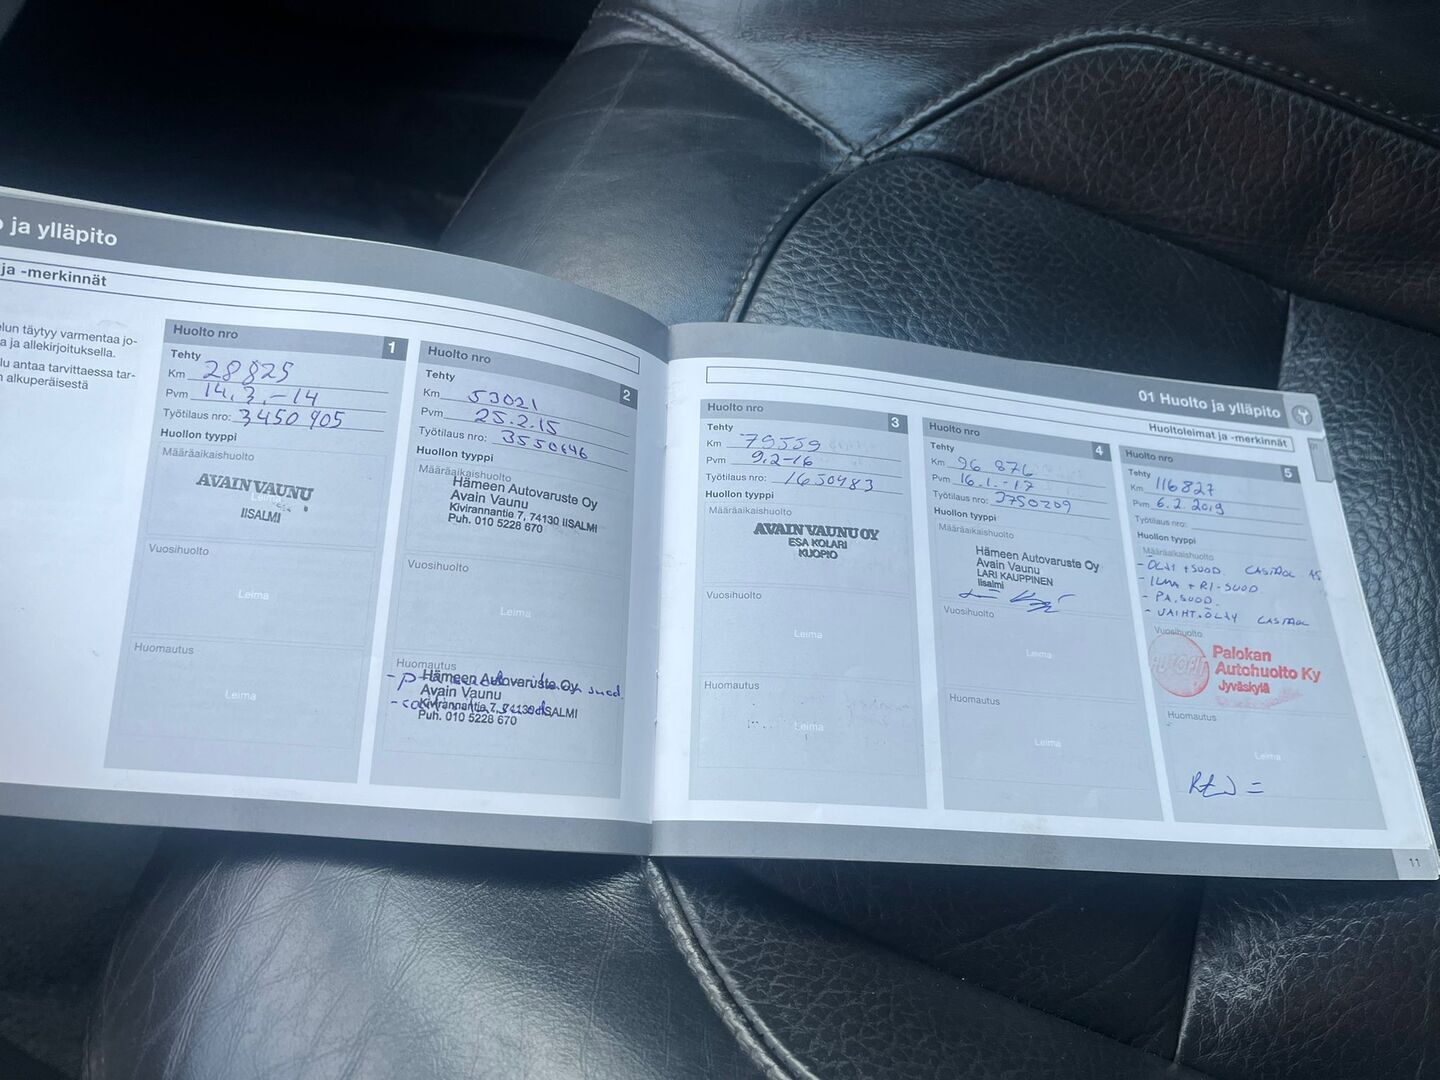 o ja ylläpito
ja -merkinnät
elun täytyy varmentaa jo-
a ja allekirjoituksella.
lu antaa tarvittaessa tar-
n alkuperäisestä
Huolto nro 1
Tehty
Km 28825
Pvm 14.3.-14
Työtilaus nro: 3450905
Huollon tyyppi
Määräaikaishuolto
AVAIN VAUNU
Leima
IISALMI
Vuosihuolto
Leima
Huomautus
Leima
Huolto nro 2
Tehty
Km 53021
Pvm 25.2.15
Työtilaus nro: 3550646
Huollon tyyppi
Määräaikaishuolto
Hämeen Autovaruste Oy
Avain Vaunu
Kivirannantie 7, 74130 IISALMI
Puh. 010 5228 670
Vuosihuolto
Leima
Huomautus
Hämeen Autovaruste Oy
Avain Vaunu
Kivirannantie 7, 74130 IISALMI
Puh. 010 5228 670
01 Huolto ja ylläpito
Huoltoleimat ja -merkinnät
Huolto nro 3
Tehty
Km 79559
Pvm 9.2-16
Työtilaus nro: 1650483
Huollon tyyppi
Määräaikaishuolto
AVAIN VAUNU OY
ESA KOLARI
KUOPIO
Vuosihuolto
Leima
Huomautus
Leima
Huolto nro 4
Tehty
Km 96 876
Pvm 16.1.-17
Työtilaus nro: 3750209
Huollon tyyppi
Määräaikaishuolto
Hämeen Autovaruste Oy
Avain Vaunu
LARI KAUPPINEN
Iisalmi
Vuosihuolto
Leima
Huomautus
Leima
Huolto nro 5
Tehty
Km 116827
Pvm 6.2.2019
Työtilaus nro:
Huollon tyyppi
Määräaikaishuolto
- ÖLJY + SUOD. CASTROL
- ILMA + RI-SUOD.
- PA.SUOD.
- VAIHT.ÖLJY CASTROL
Vuosihuolto
AUTOFIT
Palokan
Autohuolto Ky
Jyväskylä
Huomautus
Leima
11